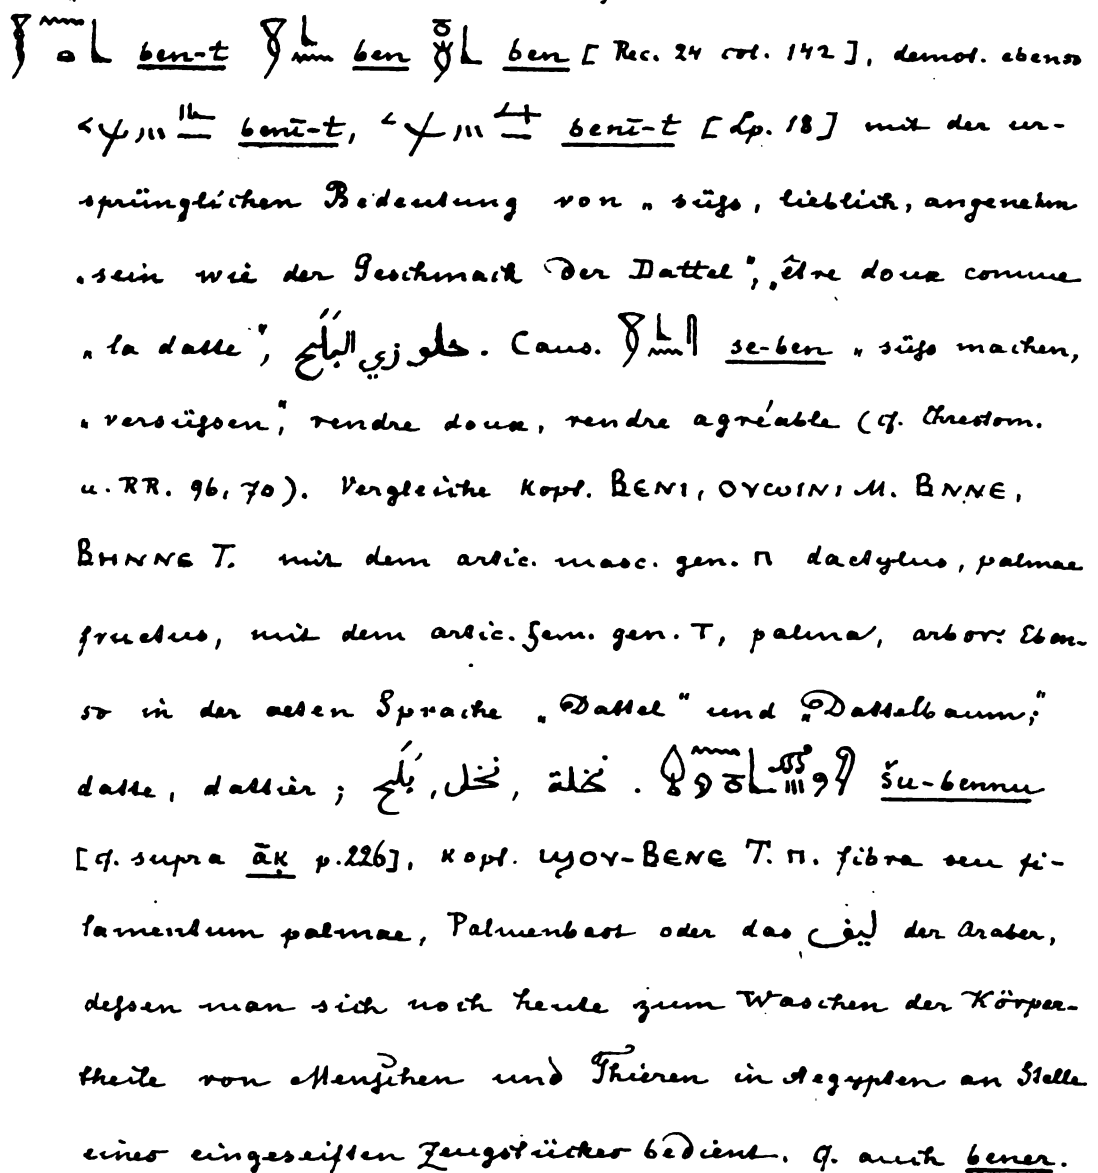 ben-t ben ben [Rec. 24 col. 142], demot. ebenso
benī-t, benī-t [Lp. 18] mit der ur-
sprünglichen Bedeutung von „süſs, lieblich, angenehm
„sein wie der Geschmack der Dattel", „être doux comme
„la datte", حلو زي البَلَح. Caus. se-ben „süſs machen,
„versüſsen", rendre doux, rendre agréable (cf. Chrestom.
u. RR. 96, 70). Vergleiche Kopt. ⲂⲈⲚⲒ, ⲞⲨⲰⲒⲚⲒ M. ⲂⲚⲚⲈ,
ⲂⲎⲚⲚⲈ T. mit dem artic. masc. gen. ⲡ dactylus, palmae
fructus, mit dem artic. fem. gen. ⲧ, palma, arbor. Eben-
so in der alten Sprache „Dattel" und „Dattelbaum",
datte, dattier; نخلة, نخل, بَلَح. šu-bennu
[cf. supra āḳ p. 226], Kopt. ϢⲞⲨ-ⲂⲈⲚⲈ T. ⲡ. fibra seu fi-
lamentum palmae, Palmenbast oder das ليف der Araber,
deſsen man sich noch heute zum Waschen der Körper-
theile von Menschen und Thieren in Aegypten an Stelle
eines eingeseiften Zeugstückes bedient. cf. auch bener.